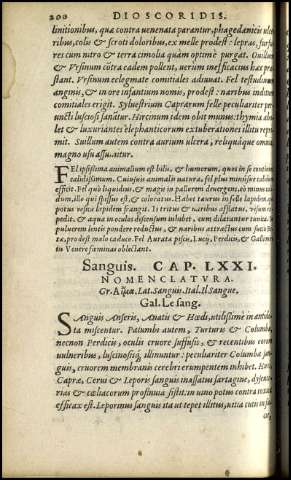 200 DIOSCORIDIS.
linitionibus, qua contra uenenata parantur, phagedænicis ulce
ribus, colis & scroti doloribus, ex melle prodest: lepras, furfu
res cum nitro & terra cimolia quàm optimè purgat. Ouillum
& Vrsinum cætera cadem pollent, uerum inefficaciùs hæc præ
stant. Vrsinum eclegmate comitiales adiuuat. Fel testudinum
anginis, & in ore infantum nomis, prodest: naribus inditum
comitiales erigit. Syluestrium Caprarum felle peculiariter per
uncti lusciosi sanátur. Hircinum idem obit munus: thymia aboo
let & luxuriantes elephanticorum extuberationes illitu repri
mit. Suillum autem contra aurium ulcera, reliquáque omnia
magno usu assumitur.
FEl ipsissima animalium est bilis, & humorum, quos in se continet
calidissimum. Cuiusuis animalis natura, fel plus minúsve calidum
efficit. Fel quò liquidius, & magis in pallorem
dum, ille qui spissius est, & coloratus. Habet taurus in felle lapidem
potus vesicæ lapidem frangit. Is tritus & naribus afflatus, visum
pedit. & aqua in oculos descensum inhibet, cum dilatantur
puluerem lentis pindere redactus, & naribus attractus cum succi
tæ, prodest malo caduco. Fel Aurata piscis, Lucij, Perdicis, & Galline
in Venere faminas oblectant.
Sanguis. CAP. LXXI.
NOMENCLATVRA.
Gr. Αἷμα. Lat. Sanguis. Ital. Il Sangue.
Gal. Le sang.
SAnguis Anseris, Anatis & Hœdi, utilissimè in antido
ta miscentur. Palumbi autem, Turturis & Columbæ,
necnon Perdicis, oculis cruore suffusis, & recentibus eorum
uulneribus, lusciosisq́, illinuntur: peculiariter Columbæ san
guis, cruorem membranis cerebri erumpentem inhibet. Hirci,
Capræ, Cerui & Leporis sanguis inassatus sartagine, dysente
rias & cœliacorum profluuia sistit. in uino potus contra toxica
efficax est. Leporinus sanguis ita ut tepet illitus, uitia cutis in fa